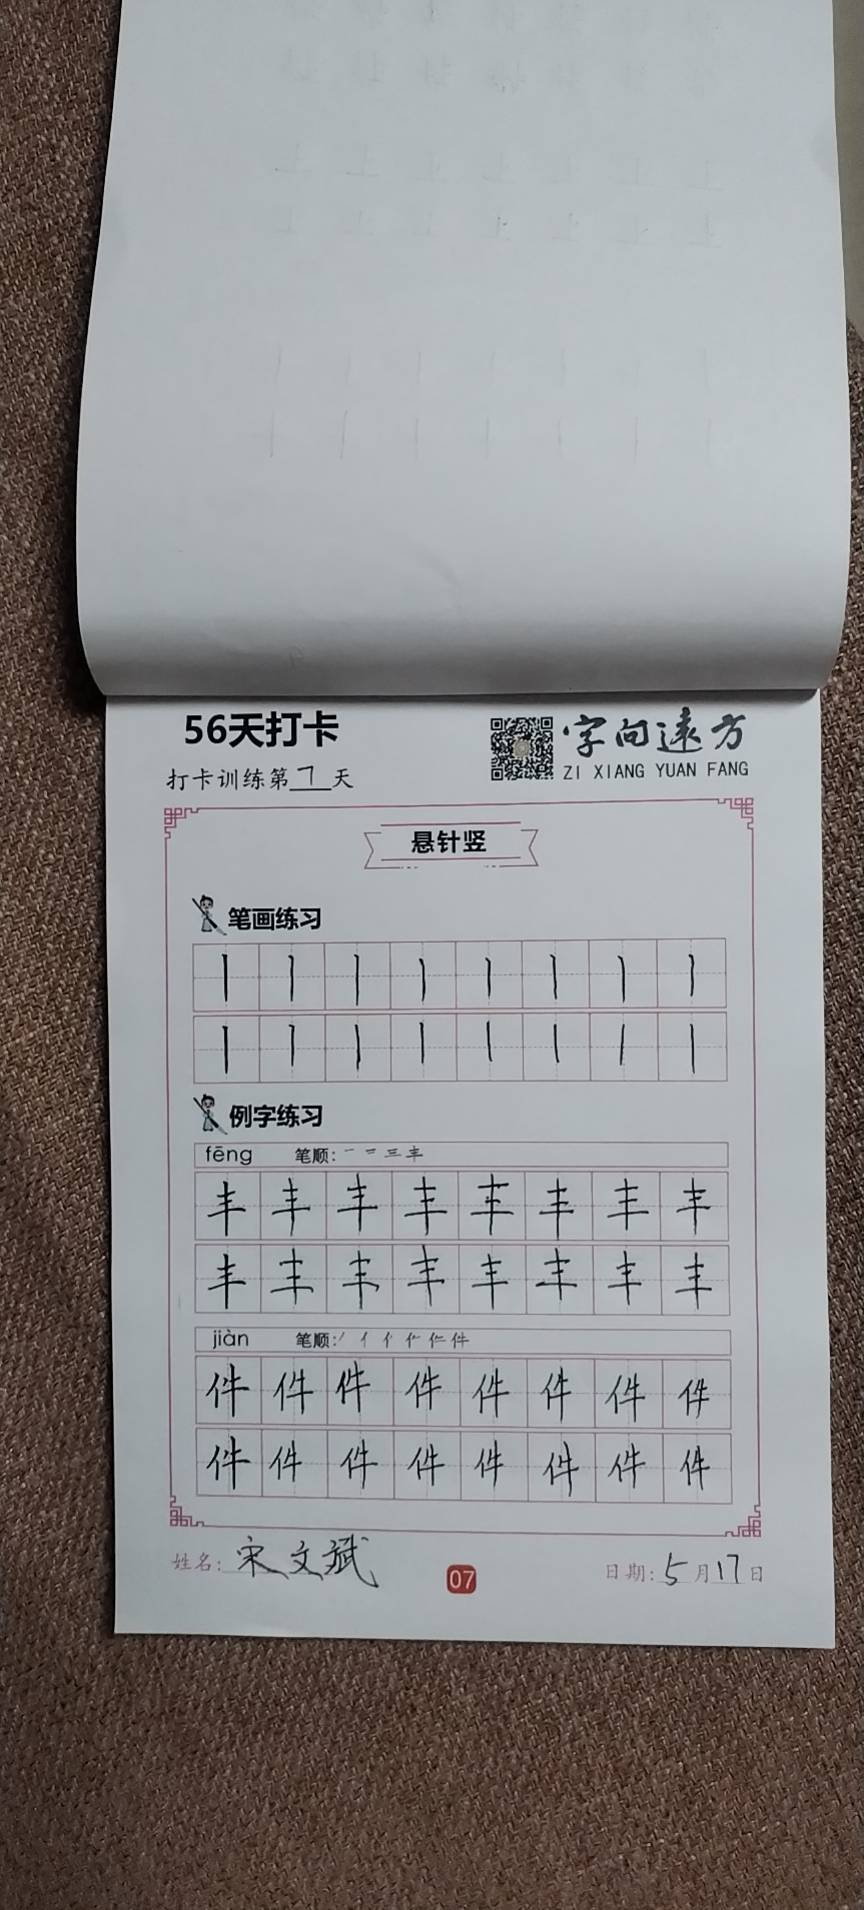 56天打卡
字向遠方
打卡训练第7天
ZI XIANG YUAN FANG
悬针竖
笔画练习
丨丨丨丨丨丨丨丨
丨丨丨丨丨丨丨丨
例字练习
fēng 笔顺: 一 二 三 丰
丰丰丰丰丰丰丰丰
丰丰丰丰丰丰丰丰
jiàn 笔顺: 丿 亻 件
件件件件件件件件
件件件件件件件件
姓名: 宋文斌
07
日期: 5月17日